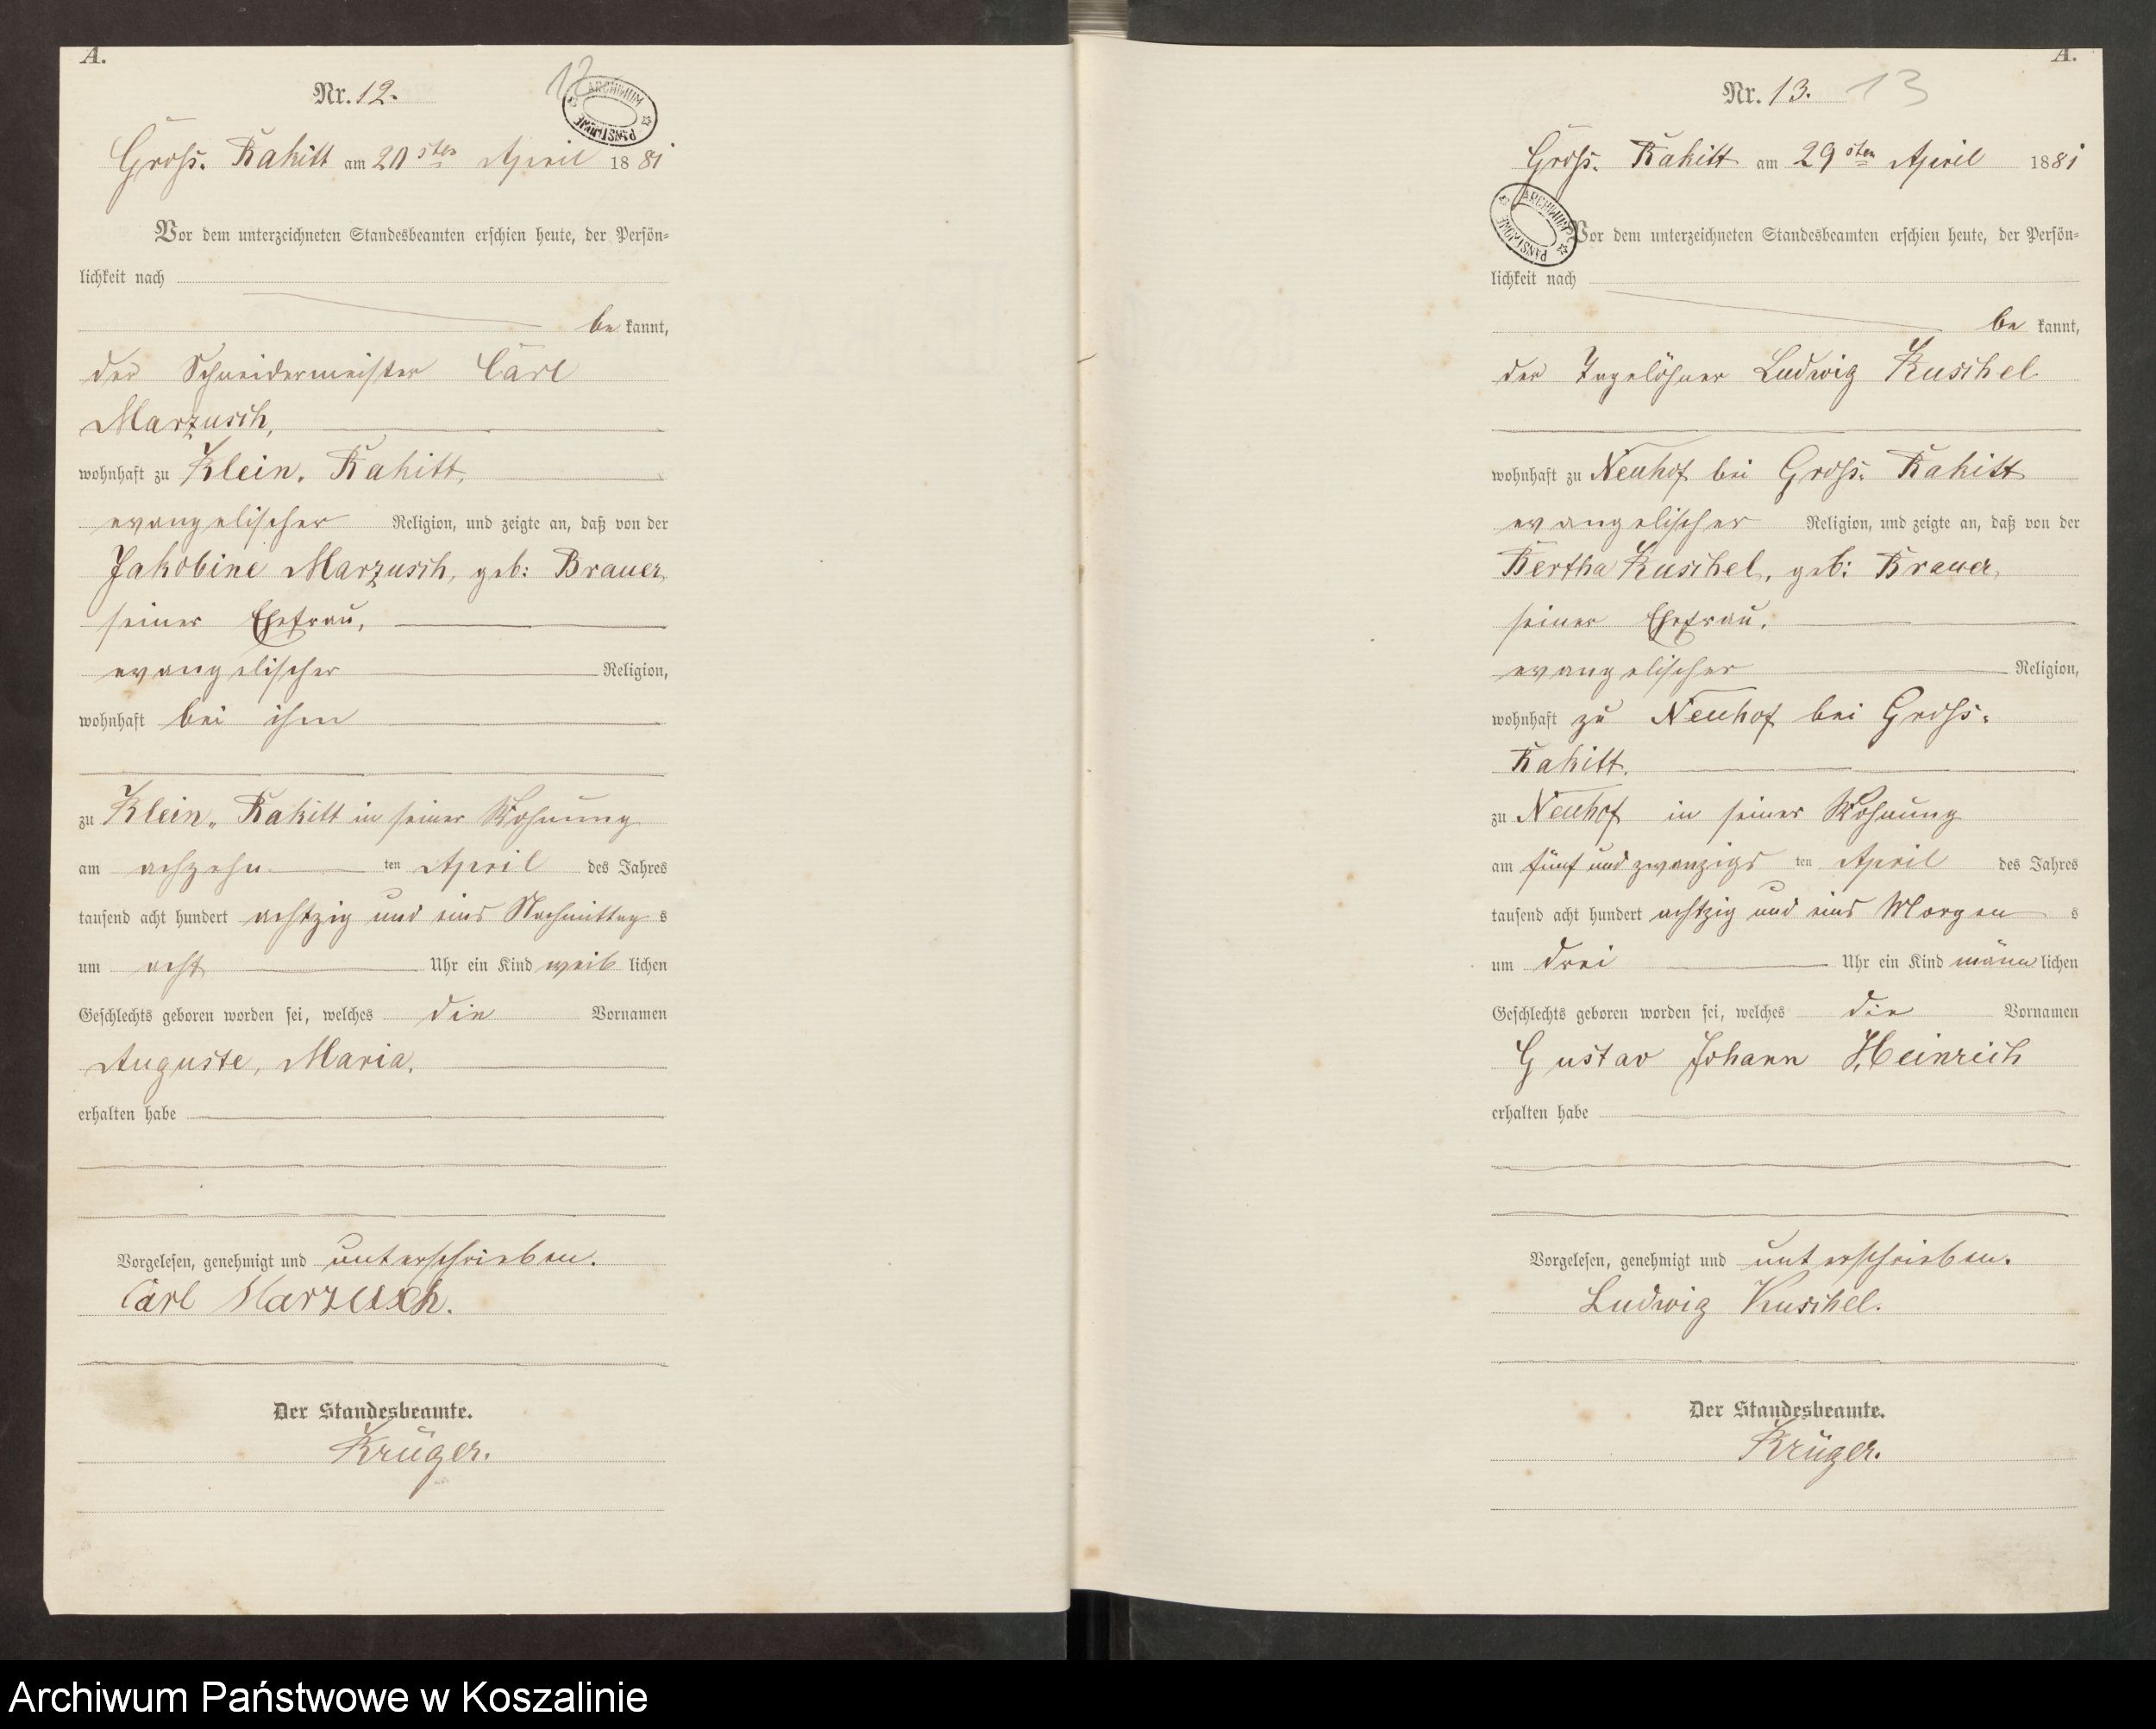 A.
Nr. 12.
12
ARCHIWUM PAŃSTWOWE
Gross. Rakitt am 20 sten April 1881
Vor dem unterzeichneten Standesbeamten erschien heute, der Persön-
lichkeit nach
be kannt,
der Schneidermeister Carl
Marzusch,
wohnhaft zu Klein. Rakitt,
evangelischer Religion, und zeigte an, daß von der
Jakobine Marzusch, geb: Brauer,
seiner Ehefrau,
evangelischer Religion,
wohnhaft bei ihm
zu Klein. Rakitt in seiner Wohnung
am achzehn ten April des Jahres
tausend acht hundert achtzig und eins Nachmittag s
um acht Uhr ein Kind weib lichen
Geschlechts geboren worden sei, welches die Vornamen
Auguste, Maria.
erhalten habe
Vorgelesen, genehmigt und unterschrieben.
Carl Marzusch.
Der Standesbeamte.
Krüger.
A.
Nr. 13.
13
Gross. Rakitt am 29 sten April 1881
ARCHIWUM PAŃSTWOWE
Vor dem unterzeichneten Standesbeamten erschien heute, der Persön-
lichkeit nach
be kannt,
der Tagelöhner Ludwig Kuschel
wohnhaft zu Neuhof bei Gross. Rakitt
evangelischer Religion, und zeigte an, daß von der
Bertha Kuschel, geb: Brauer,
seiner Ehefrau.
evangelischer Religion,
wohnhaft zu Neuhof bei Gross.
Rakitt.
zu Neuhof in seiner Wohnung
am fünf und zwanzigs ten April des Jahres
tausend acht hundert achtzig und eins Morgen s
um drei Uhr ein Kind männ lichen
Geschlechts geboren worden sei, welches die Vornamen
Gustav Johann Heinrich
erhalten habe
Vorgelesen, genehmigt und unterschrieben.
Ludwig Kuschel.
Der Standesbeamte.
Krüger.
Archiwum Państwowe w Koszalinie